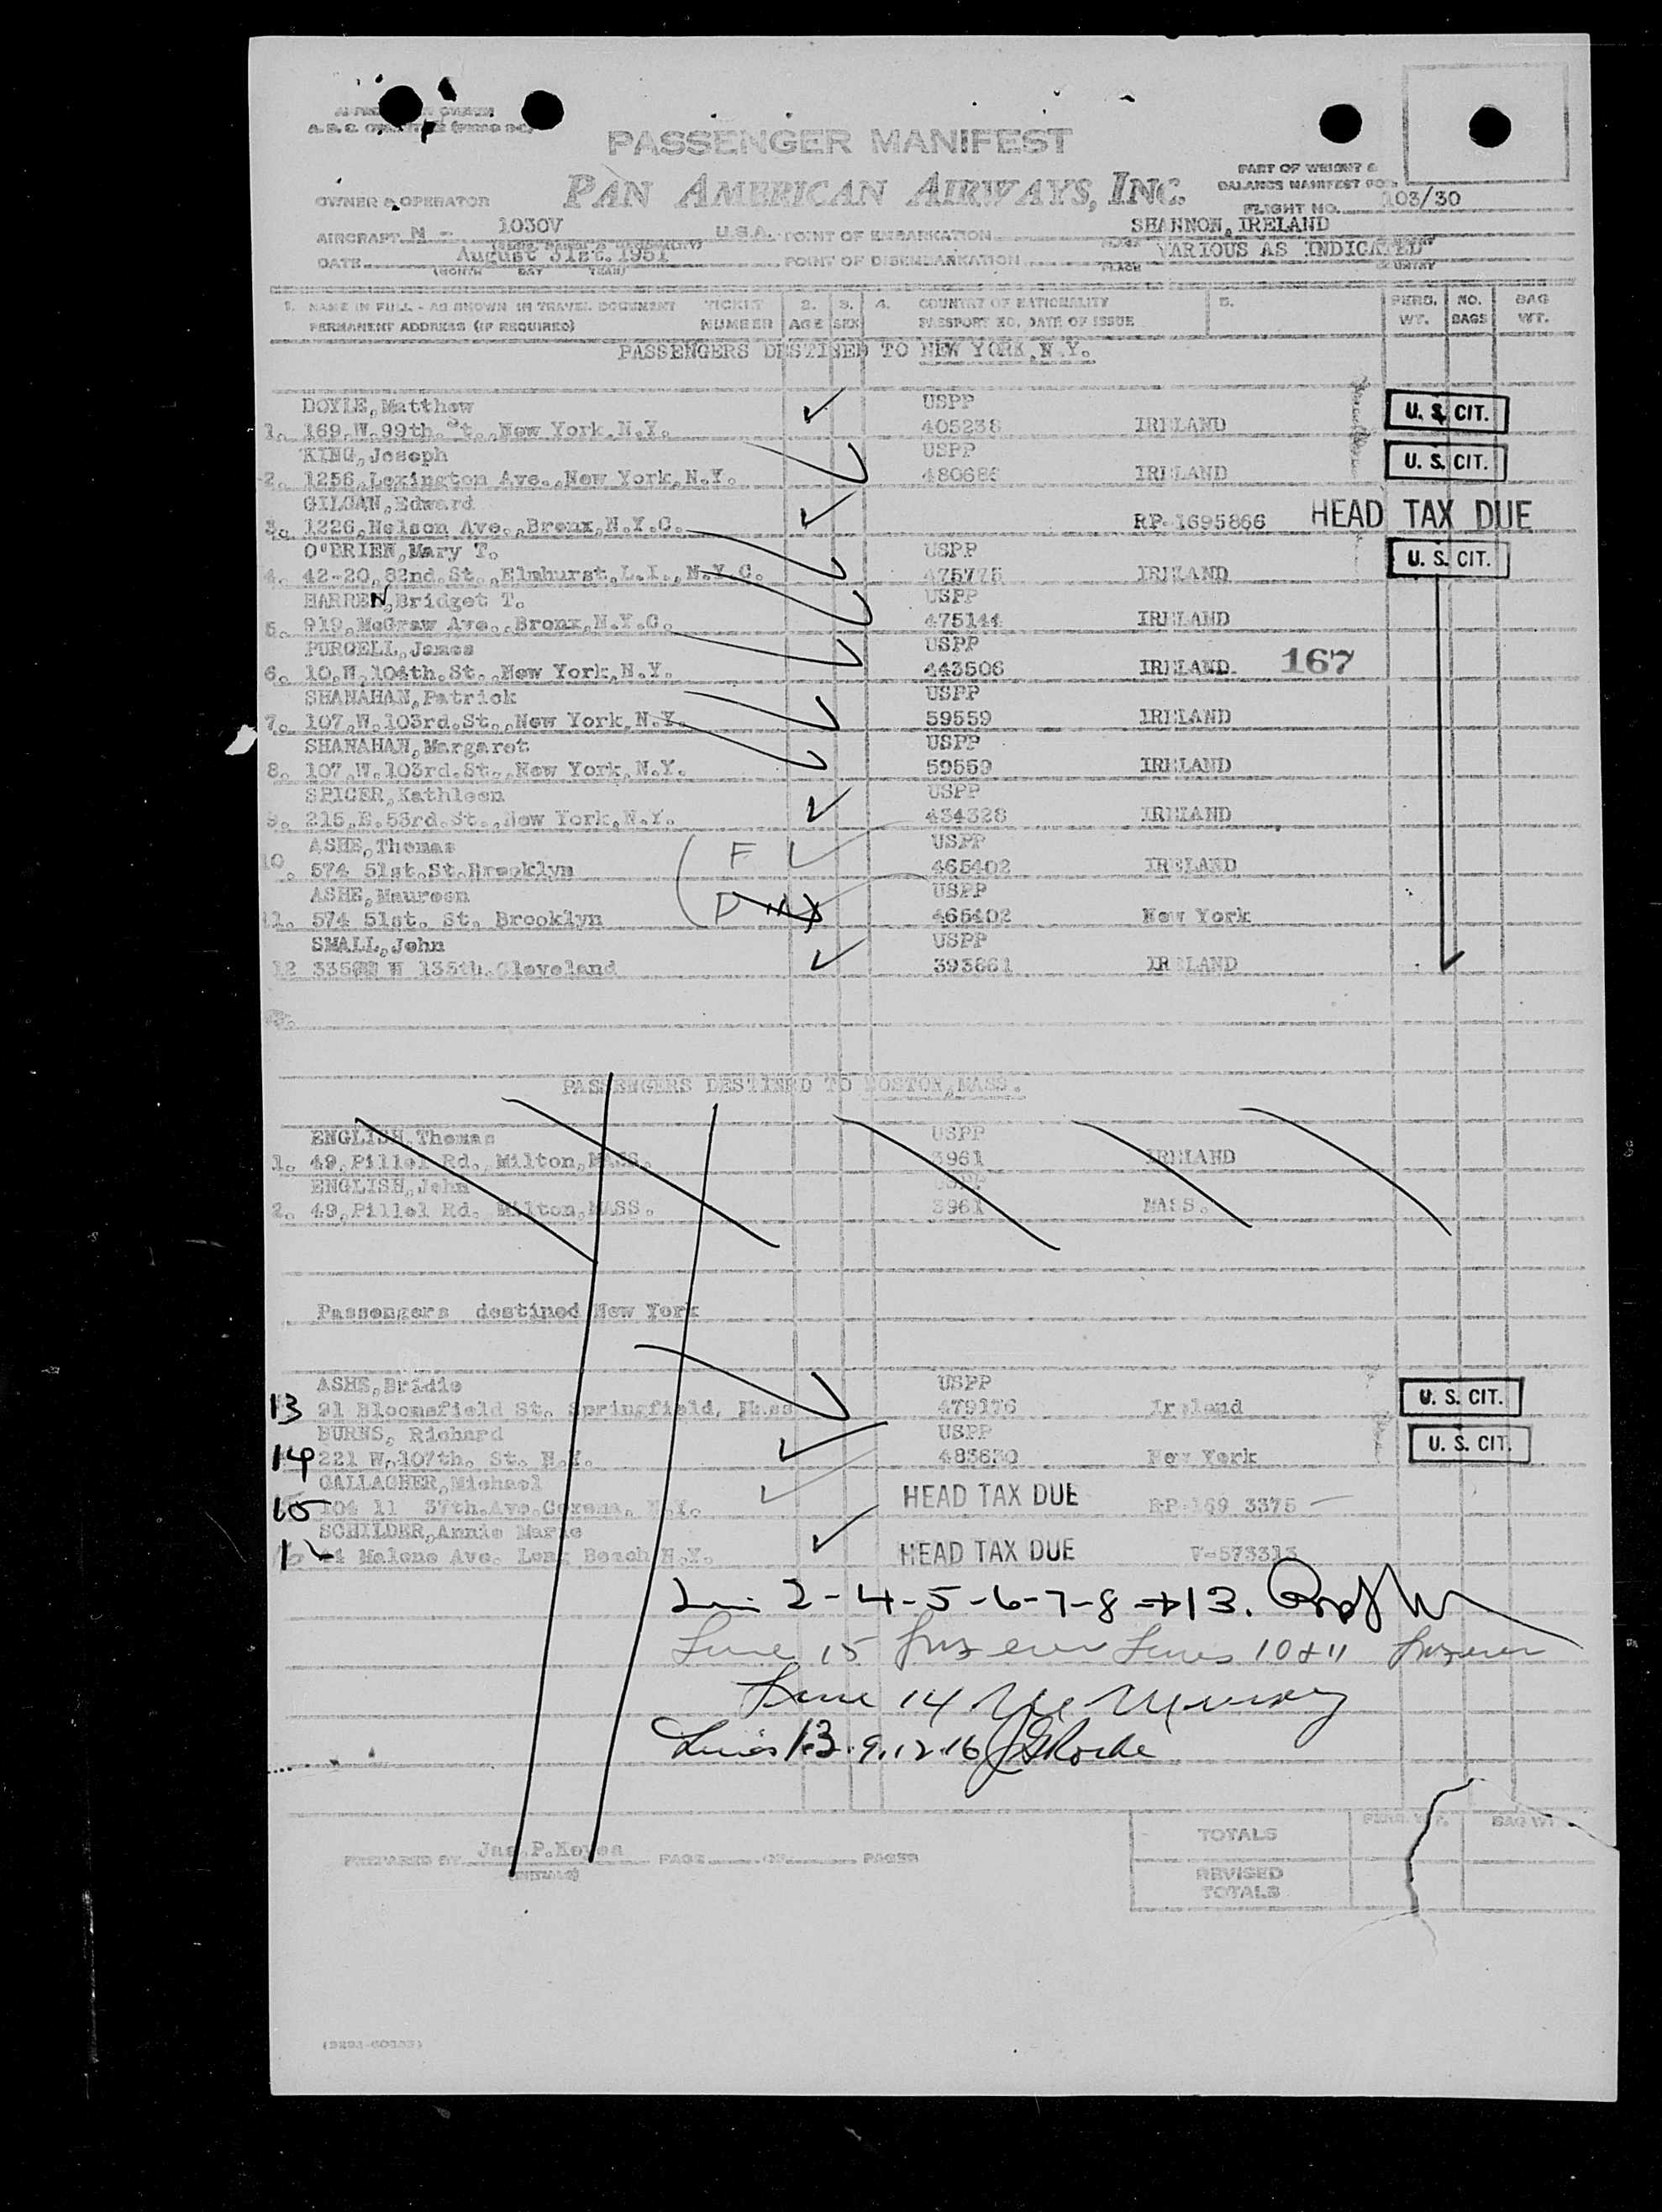 PASSENGER MANIFEST
PART OF WEIGHT &
BALANCE MANIFEST FOR
OWNER & OPERATOR PAN AMERICAN AIRWAYS, INC. FLIGHT NO. 103/30
AIRCRAFT N - 1030V U.S.A. POINT OF EMBARKATION SHANNON, IRELAND
DATE August 31st. 1951 POINT OF DISEMBARKATION VARIOUS AS INDICATED
(MONTH DAY YEAR) PLACE COUNTRY
1. NAME IN FULL - AS SHOWN IN TRAVEL DOCUMENT TICKET 2. 3. 4. COUNTRY OF NATIONALITY 5. PERS. NO. BAG
PERMANENT ADDRESS (IF REQUIRED) NUMBER AGE SEX PASSPORT NO. DATE OF ISSUE WT. BAGS WT.
PASSENGERS DESTINED TO NEW YORK, N.Y.
DOYLE, Matthew USPP U. S. CIT.
1. 169, W. 99th. St., New York, N.Y. 405238 IRELAND
KING, Joseph USPP U. S. CIT.
2. 1256, Lexington Ave., New York, N.Y. 480686 IRELAND
GILGAN, Edward
3. 1226, Nelson Ave., Bronx, N.Y.C. RP-1695866 HEAD TAX DUE
O'BRIEN, Mary T. USPP U. S. CIT.
4. 42-20, 82nd. St., Elmhurst, L.I., N.Y.C. 475775 IRELAND
HARREN, Bridget T. USPP
5. 919, McGraw Ave., Bronx, N.Y.C. 475144 IRELAND
PURCELL, James USPP
6. 10, W. 104th. St., New York, N.Y. 443506 IRELAND. 167
SHANAHAN, Patrick USPP
7. 107, W. 103rd. St., New York, N.Y. 59559 IRELAND
SHANAHAN, Margaret USPP
8. 107, W. 103rd. St., New York, N.Y. 59559 IRELAND
SPICER, Kathleen USPP
9. 215, E. 53rd. St., New York, N.Y. 434328 IRELAND
ASHE, Thomas F USPP
10. 574 51st. St. Brooklyn 465402 IRELAND
ASHE, Maureen USPP
11. 574 51st. St. Brooklyn 465402 New York
SMALL, John USPP
12 W 135th. Cleveland 393661 IRELAND
PASSENGERS DESTINED TO BOSTON, MASS.
ENGLISH, Thomas USPP
1. 49, Pillel Rd., Milton, MASS. 3961 IRELAND
ENGLISH, John USPP
2. 49, Pillel Rd. Milton, MASS. 3961 MASS.
Passengers destined New York
ASHE, Bridie USPP U. S. CIT.
13 91 Bloomsfield St. Springfield, Mass 479176 Ireland
BURNS, Richard USPP U. S. CIT.
14 221 W. 107th. St. N.Y. 483630 New York
GALLAGHER, Michael
15 104 11 37th. Ave. Corona, N.Y. HEAD TAX DUE RP 169 3375
SCHILDER, Annie Marie
44 Malone Ave. Long Beach N.Y. HEAD TAX DUE V-573313
2-4-5-6-7-8 → 13.
Line 15 Lines 10 & 11
Line 14
Lines 1.3.9.12.16
PREPARED BY PAGE OF PAGES TOTALS PERS. WT. BAG WT.
(INITIALS) REVISED
TOTALS